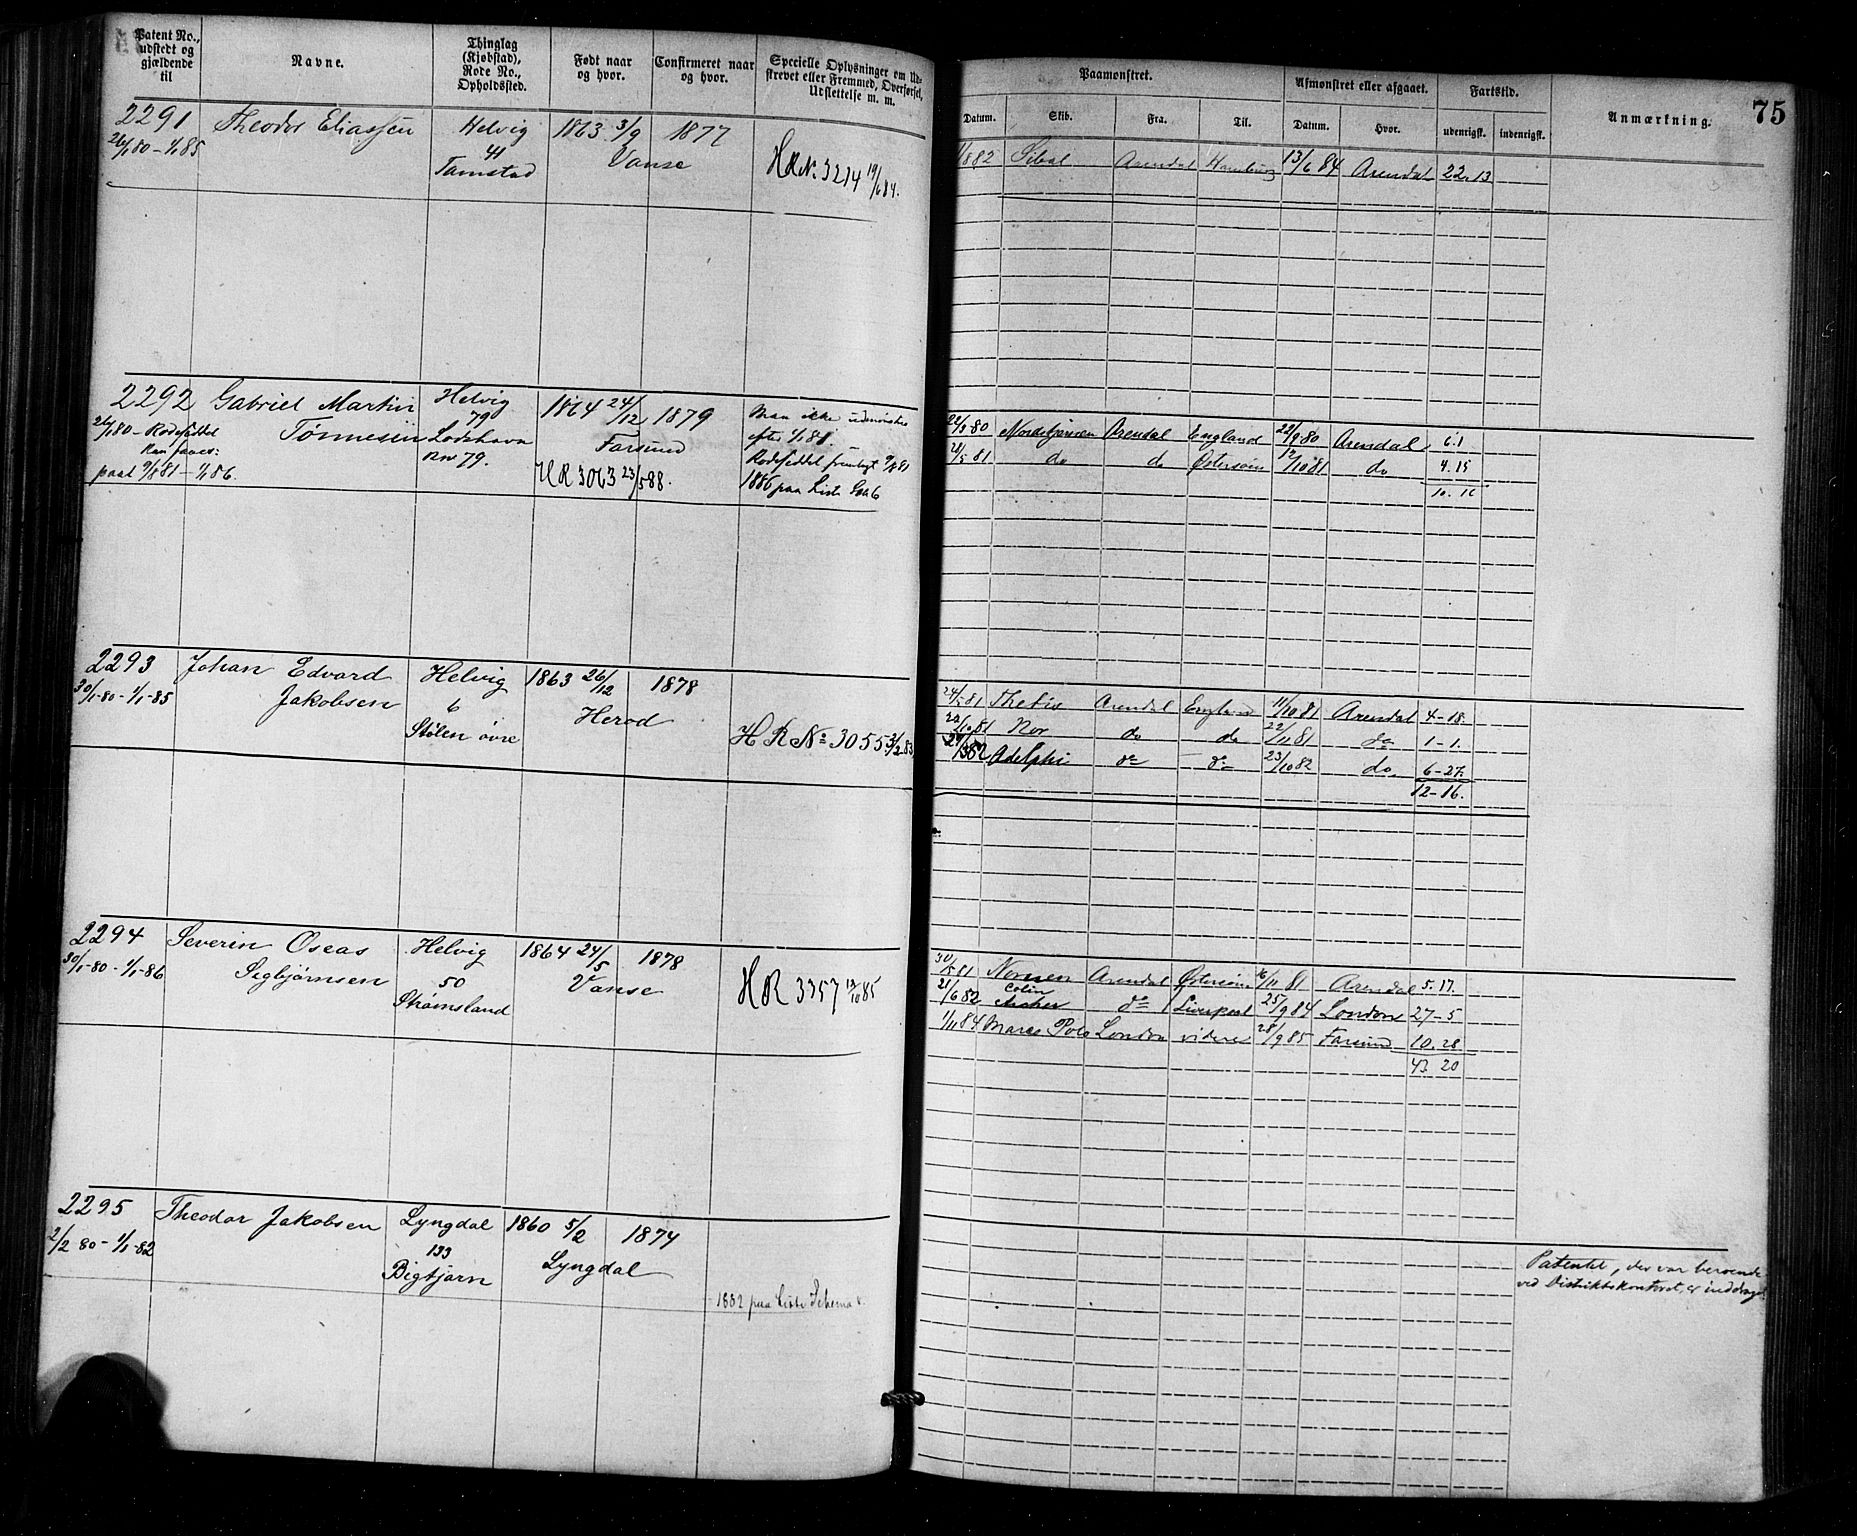 Patent No., udstedt og gjældende til
Navne.
Thinglag (Kjøbstad), Rode No., Opholdssted.
Født naar og hvor.
Confirmeret naar og hvor.
Specielle Oplysninger om Udstrevet eller Fremmed, Overførsel, Udslettelse m. m.
Paamønstret.
Afmønstret eller afgaaet.
Fartstid.
Anmærkning.
75
Datum.
Skib.
Fra.
Til.
Datum.
Hvor.
udenrigsk.
indenrigsk.
2291 Theodor Eliassen Helvig 1863 3/9 1877
26/1 80 - 1/1 85 41 Vanse
Tamstad
H R N. 3214 19/6 84.
882 Arendal Hamburg 13/6 84 Arendal 22.13
2292 Gabriel Martin Helvig 1864 24/12 1879
Tønnesen 79 Farsund
26/1 80 - Rodeseddel Lodshavn
Rno 79.
paat 9/8 81 - 1/1 86.
H R 3063 23/5 88.
Maa ikke udmønstres
efter 1/1 81.
Rodeseddel fremlagt 9/8 81
1886 paa Liste
22/3 80 Arendal England 22/9 80 Arendal 6.1
21/5 81 do do Østersøen 12/10 81 do 4.15
10.16
2293 Johan Edvard Helvig 1863 26/12 1878
30/1-80 - 1/1-85 Jakobsen 6 Herod
Stølen øvre
H R No 3055 2/2 83
24/5 81 Thetis Arendal England 11/10 81 Arendal 4-18
22/10 81 Nor do do 22/11 81 do 1-1.
27/3 82 Adelphi do do 23/10 82 do. 6-27.
12-16.
2294 Severin Oseas Helvig 1864 24/5 1878
30/1-80 - 1/1-86 Sigbjørnsen 50 Vanse
Strømsland
H R 3357 12/10 85
30/5 81 Normen Arendal Østersøen 16/11 81 Arendal 5.17.
21/6 82 Colin Archer do Liverpool 25/9 84 London 27-5
1/11 84 Marco Polo London videre 28/9 85 Farsund 10.28
43 20
2295 Theodor Jakobsen Lyngdal 1860 5/2 1874
2/2 80 - 1/1-82 133 Lyngdal
Bigtjørn
1882 paa Liste Schema
Patentet, der var beroende
ved Distriktskontoret, er inddraget